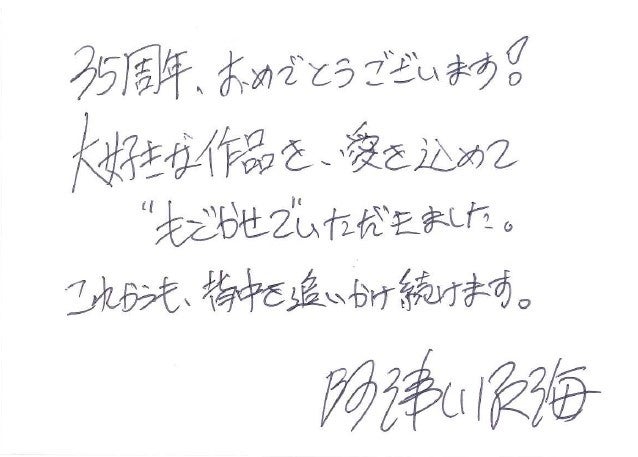 35周年、おめでとうございます!
大好きな作品を、愛を込めて
“もじらせ”でいただきました。
これからも、背中を追いかけ続けます。
阿津川辰海